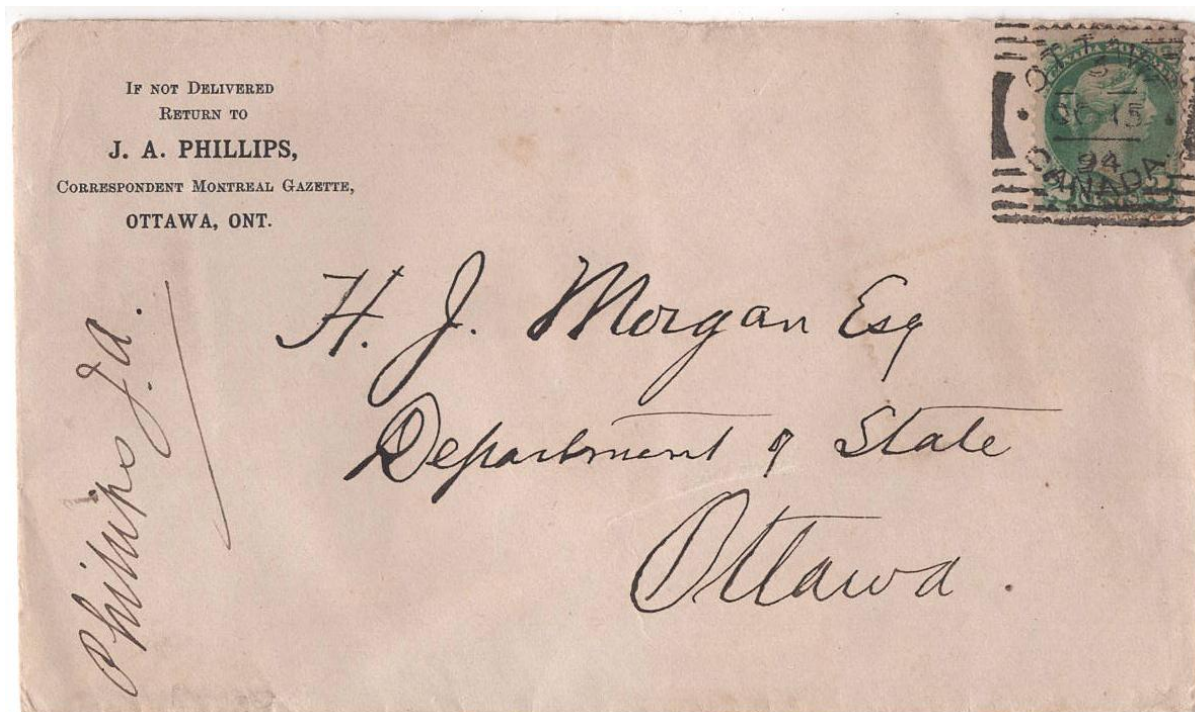 IF NOT DELIVERED
RETURN TO
J. A. PHILLIPS,
CORRESPONDENT MONTREAL GAZETTE,
OTTAWA, ONT.
OTTAWA
15
94
CANADA
H. J. Morgan Esq
Department of State
Ottawa.
Phillips J. A.